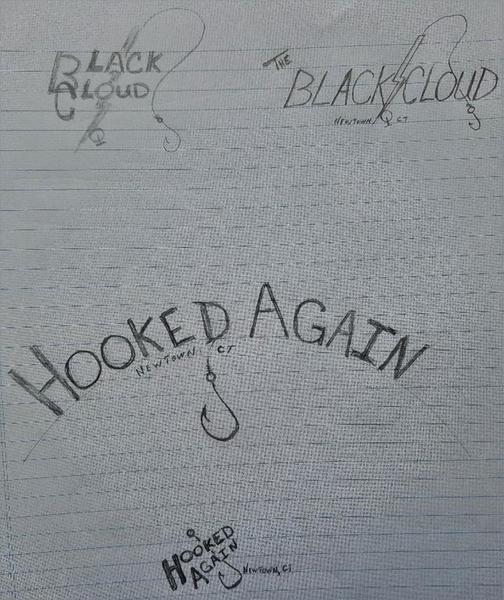 BLACK
CLOUD
THE
BLACK CLOUD
NEWTOWN CT
HOOKED AGAIN
NEWTOWN CT
HOOKED
AGAIN
NEWTOWN, CT.